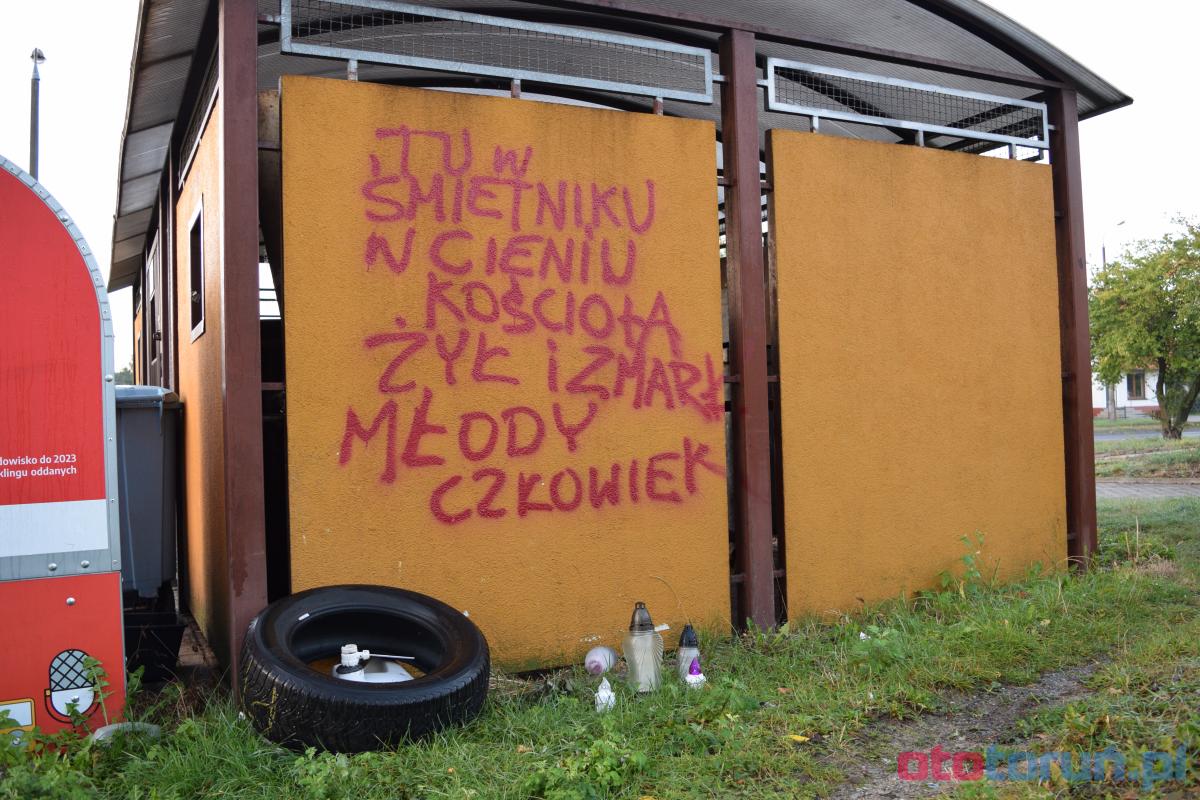 TU W
ŚMIETNIKU
W CIENIU
KOŚCIOŁA
ŻYŁ i ZMARŁ
MŁODY
CZŁOWIEK
dowisko do 2023
klingu oddanych
ototoruń.pl